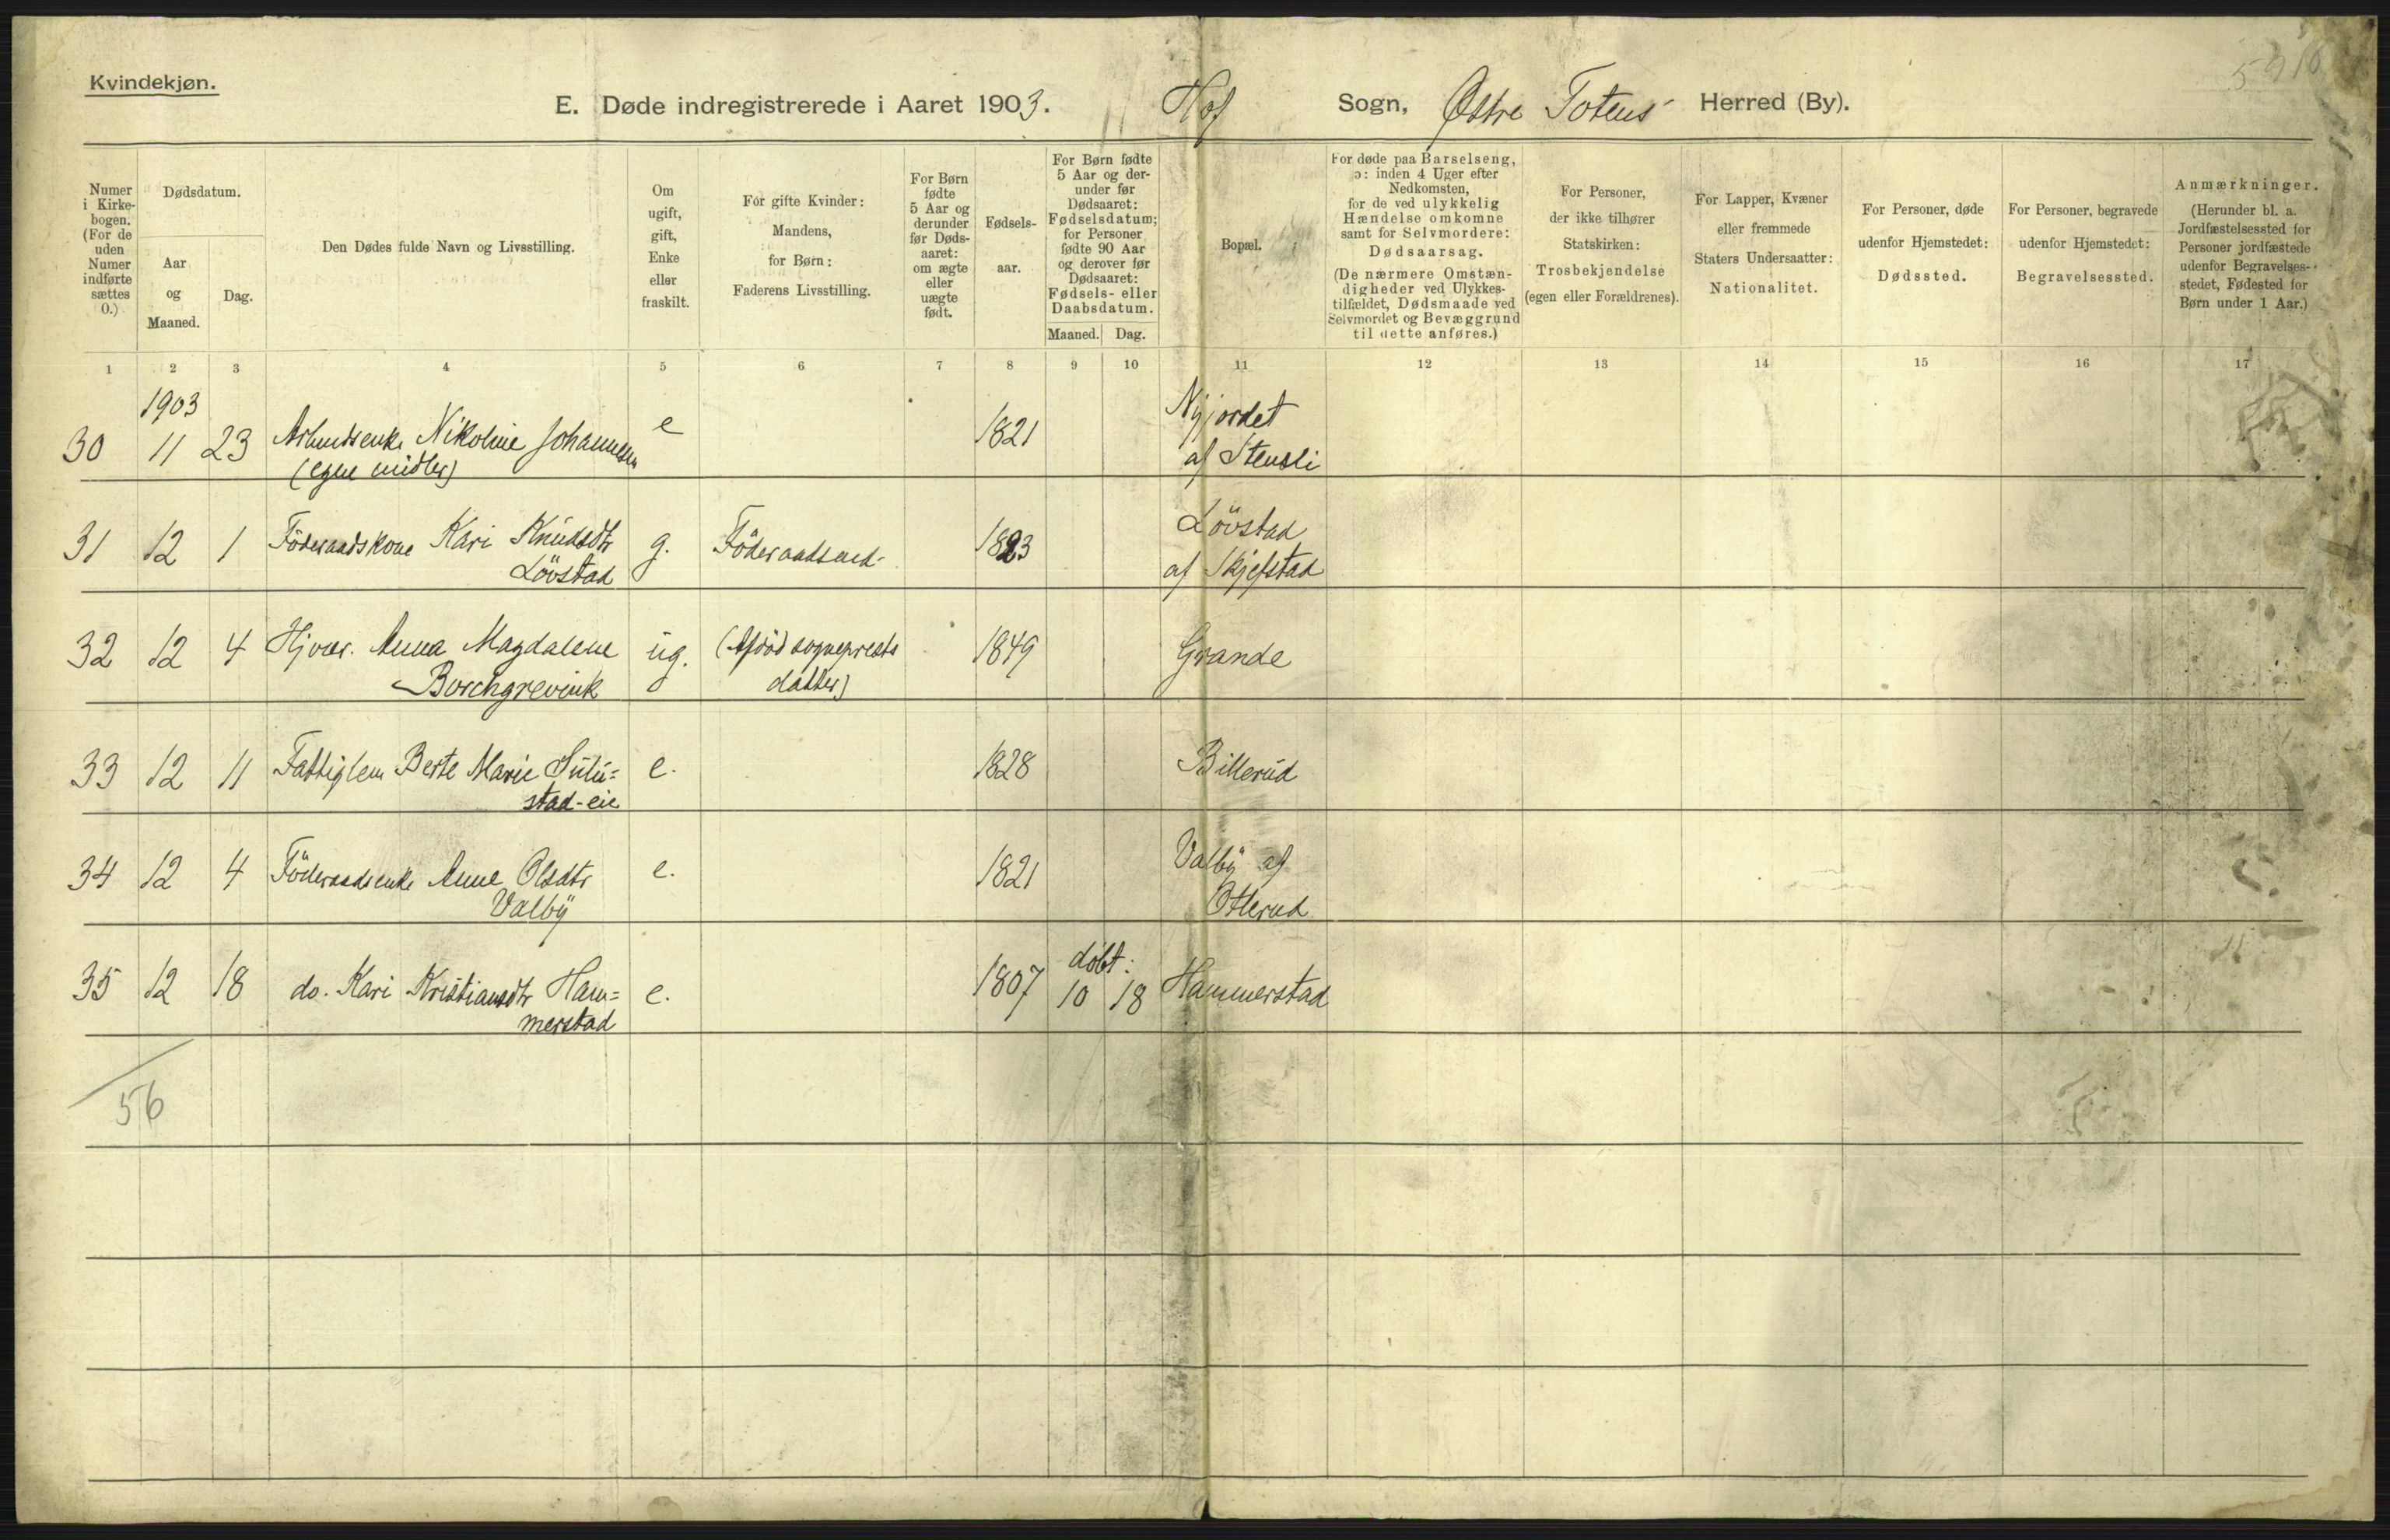 Kvindekjøn.
E. Døde indregistrerede i Aaret 1903. Hof Sogn, Østre Totens Herred (By).
Numer i Kirke-bogen. (For de uden Numer indførte sættes 0.)
Dødsdatum.
Aar og Maaned.
Dag.
Den Dødes fulde Navn og Livsstilling.
Om ugift, gift, Enke eller fraskilt.
For gifte Kvinder: Mandens, for Børn: Faderens Livsstilling.
For Børn fødte 5 Aar og derunder før Døds-aaret: om ægte eller uægte født.
Fødsels-aar.
For Børn fødte 5 Aar og der-under før Dødsaaret: Fødselsdatum; for Personer fødte 90 Aar og derover før Dødsaaret: Fødsels- eller Daabsdatum.
Maaned. Dag.
Bopæl.
For døde paa Barselseng, ɔ: inden 4 Uger efter Nedkomsten, for de ved ulykkelig Hændelse omkomne samt for Selvmordere: Dødsaarsag. (De nærmere Omstæn-digheder ved Ulykkes-tilfældet, Dødsmaade ved Selvmordet og Bevæggrund til dette anføres.)
For Personer, der ikke tilhører Statskirken: Trosbekjendelse (egen eller Forældrenes).
For Lapper, Kvæner eller fremmede Staters Undersaatter: Nationalitet.
For Personer, døde udenfor Hjemstedet: Dødssted.
For Personer, begravede udenfor Hjemstedet: Begravelsessted.
Anmærkninger. (Herunder bl. a. Jordfæstelsessted for Personer jordfæstede udenfor Begravelses-stedet, Fødested for Børn under 1 Aar.)
1 2 3 4 5 6 7 8 9 10 11 12 13 14 15 16 17
1903 Nyjordet
30 11 23 Arbeidsenke Nikoline Johannesen e 1821 af Stensli
(egne midler)
31 12 1 Föderaadskone Kari Knudsdtr g. Föderaadsmd. 1823 Lövstad
Lövstad af Skjefstad
32 12 4 Hjvær. Anna Magdalene ug. (Afdöd sogneprests 1849 Grande
Borchgrevink datter)
33 12 11 Fattiglem Berte Marie Sulu= e. 1828 Billerud
stad-eie
34 12 4 Föderaadsenke Anne Olsdtr e. 1821 Valby af
Valby Otterud
döbt:
35 12 18 do. Kari Kristiansdtr Ham= e. 1807 10 18 Hammerstad
merstad
56